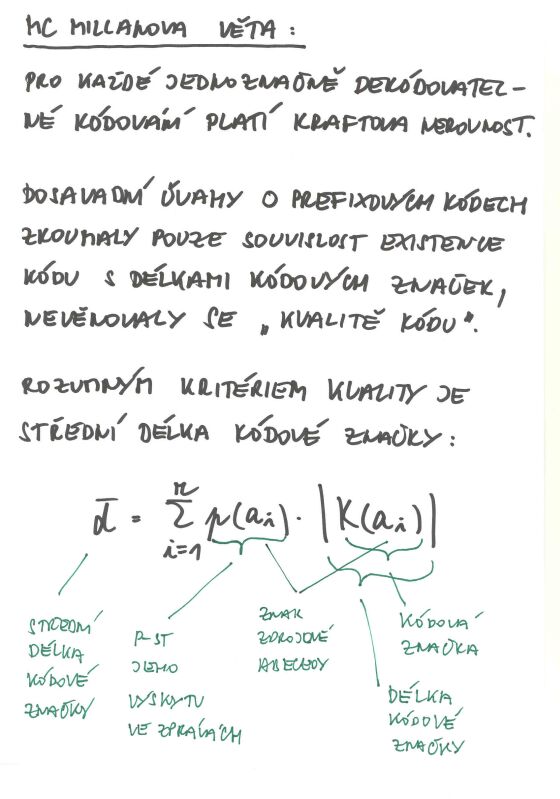 MC MILLANOVA VĚTA:
PRO KAŽDÉ JEDNOZNAČNĚ DEKÓDOVATEL-
NÉ KÓDOVÁNÍ PLATÍ KRAFTOVA NEROVNOST.
DOSAVADNÍ ÚVAHY O PREFIXOVÝCH KÓDECH
ZKOUMALY POUZE SOUVISLOST EXISTENCE
KÓDU S DÉLKAMI KÓDOVÝCH ZNAČEK,
NEVĚNOVALY SE „KVALITĚ KÓDU".
ROZUMNÝM KRITÉRIEM KVALITY JE
STŘEDNÍ DÉLKA KÓDOVÉ ZNAČKY:
d̄ = Σ_{i=1}^{n} p(a_i) · |K(a_i)|
STŘEDNÍ
DÉLKA
KÓDOVÉ
ZNAČKY
P-ST
JEHO
VÝSKYTU
VE ZPRÁVÁCH
ZNAK
ZDROJOVÉ
ABECEDY
KÓDOVÁ
ZNAČKA
DÉLKA
KÓDOVÉ
ZNAČKY